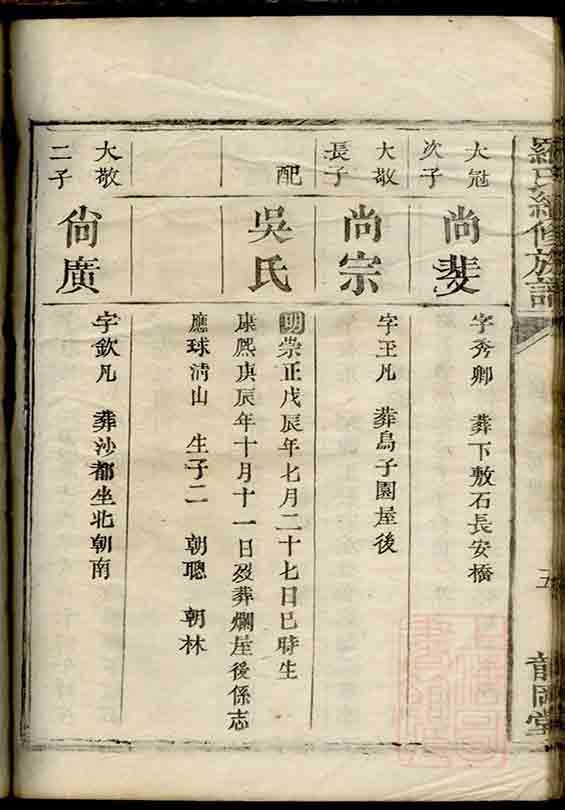 羅氏續修族譜
五
大冠
次子
尚斐
字秀卿 葬下敷石長安橋
大敬
長子
尚宗
字王凡 葬烏子園屋後
配
吳氏
明崇正戊辰年七月二十七日巳時生
康熙庚辰年十月十一日歿葬爛屋後係志
應球清山 生子二 朝聰 朝林
大敬
二子
尚廣
字欽凡 葬沙都坐北朝南